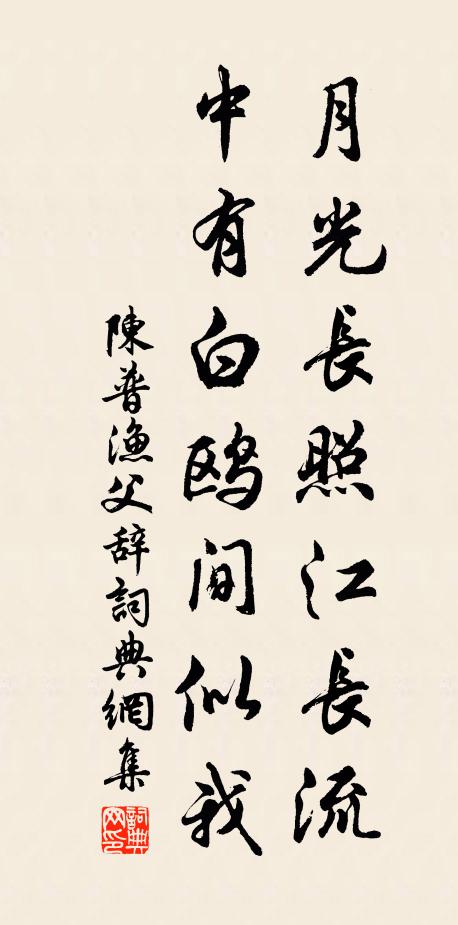 月光長照江長流
中有白鸥间似我
陳普漁父辞詞典網集
詞典网印